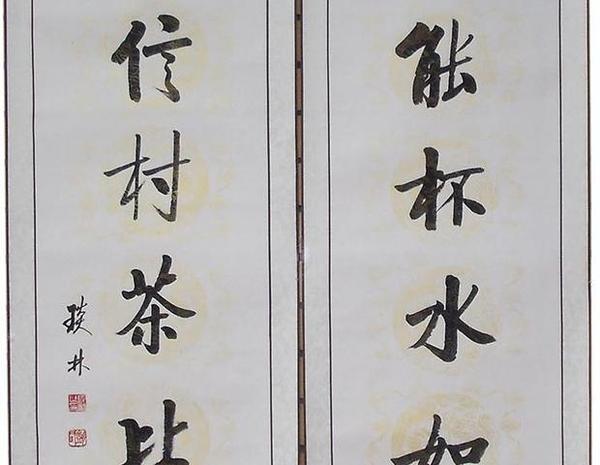 能杯水如
信村茶比
琰林